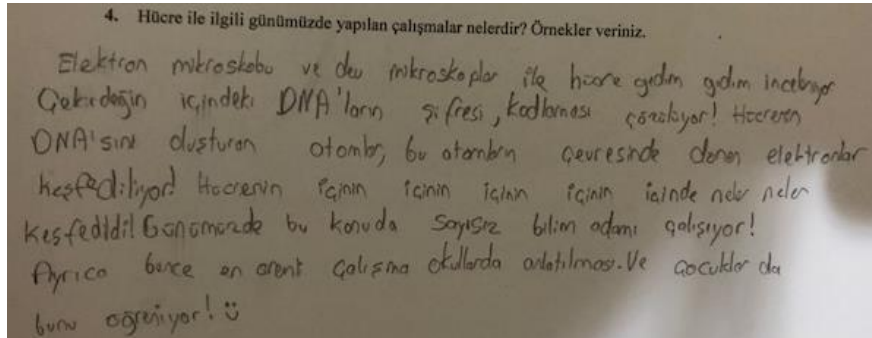 4. Hücre ile ilgili günümüzde yapılan çalışmalar nelerdir? Örnekler veriniz.
Elektron mikroskobu ve dev mikroskoplar ile hücre gıdım gıdım inceleniyor
Çekirdeğin içindeki DNA'ların şifresi, kodlaması çözülüyor! Hücrenin
DNA'sını oluşturan atomlar, bu atomların çevresinde dönen elektronlar
keşfediliyor! Hücrenin içinin içinin içinin içinin içinde neler neler
keşfedildi! Günümüzde bu konuda sayısız bilim adamı çalışıyor!
Ayrıca bence en çalışma okullarda anlatılması. Ve çocuklar da
bunu öğreniyor! ü